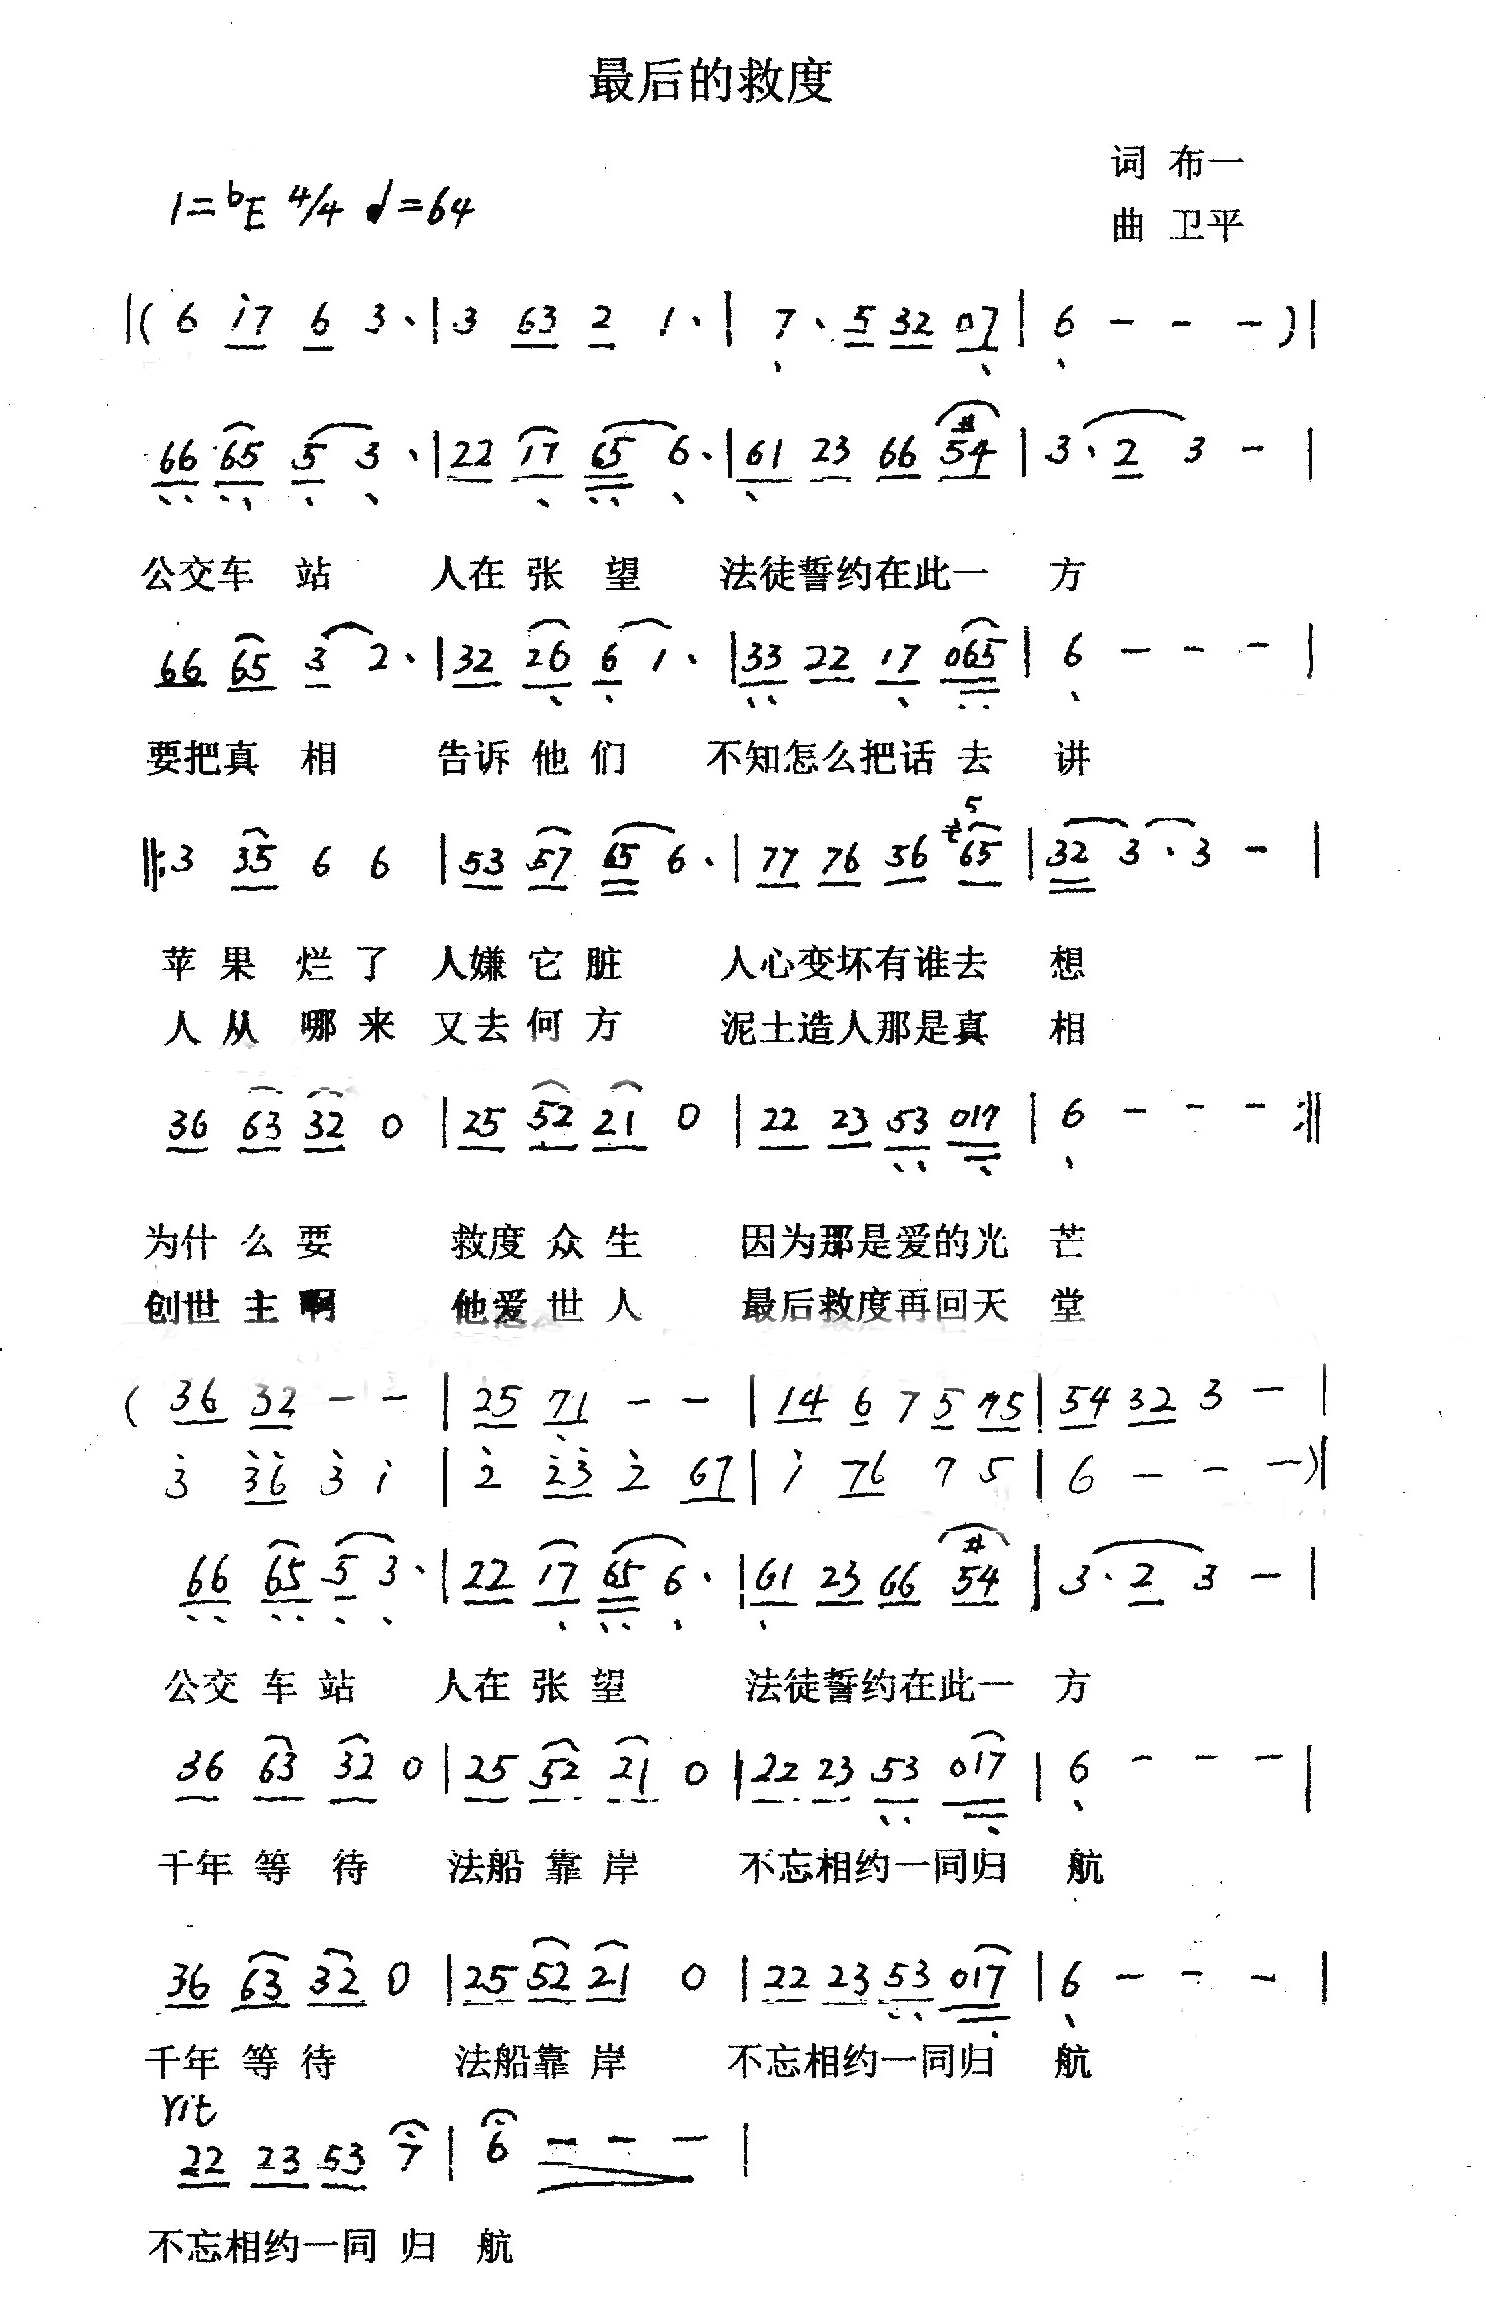 最后的救度
词 布一
1=bE 4/4 ♩=64
曲 卫平
|( 6 i7 6 3· | 3 63 2 1· | 7· 5 32 07 | 6 - - - )|
66 65 5 3· | 22 17 65 6· | 61 23 66 #54 | 3·2 3 - |
公交车 站 人在 张 望 法徒誓约在此一 方
66 65 3 2· | 32 26 6 1· | 33 22 17 065 | 6 - - - |
要把真 相 告诉 他 们 不知怎么把话 去 讲
‖: 3 35 6 6 | 53 57 65 6· | 77 76 56 65 | 32 3·3 - |
苹 果 烂 了 人嫌 它 脏 人心变坏有谁去 想
人 从 哪 来 又去 何 方 泥土造人那是真 相
36 63 32 0 | 25 52 21 0 | 22 23 53 017 | 6 - - - :‖
为什 么 要 救度 众 生 因为那是爱的光 芒
创世 主 啊 他爱 世 人 最后救度再回天 堂
( 36 32 - - | 25 71 - - | 14 6 7 5 75 | 54 32 3 - |
3 36 3 i | 2 23 2 67 | i 76 7 5 | 6 - - - )|
66 65 5 3· | 22 17 65 6· | 61 23 66 #54 | 3·2 3 - |
公交 车 站 人在 张 望 法徒誓约在此一 方
36 63 32 0 | 25 52 21 0 | 22 23 53 017 | 6 - - - |
千年 等 待 法船 靠 岸 不忘相约一同归 航
36 63 32 0 | 25 52 21 0 | 22 23 53 017 | 6 - - - |
千年 等 待 法船靠 岸 不忘相约一同归 航
rit
22 23 53 7 | 6 - - - |
不忘相约一同 归 航